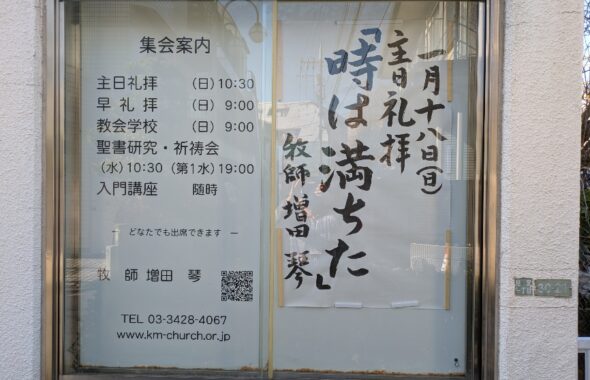 集会案内
主日礼拝 (日) 10:30
早 礼 拝 (日) 9:00
教会学校 (日) 9:00
聖書研究・祈祷会
(水) 10:30 (第1水) 19:00
入門講座 随時
― どなたでも出席できます ―
牧 師 増田 琴
TEL 03-3428-4067
www.km-church.or.jp
一月十八日(日)
主日礼拝
「時は満ちた」
牧師 増田 琴